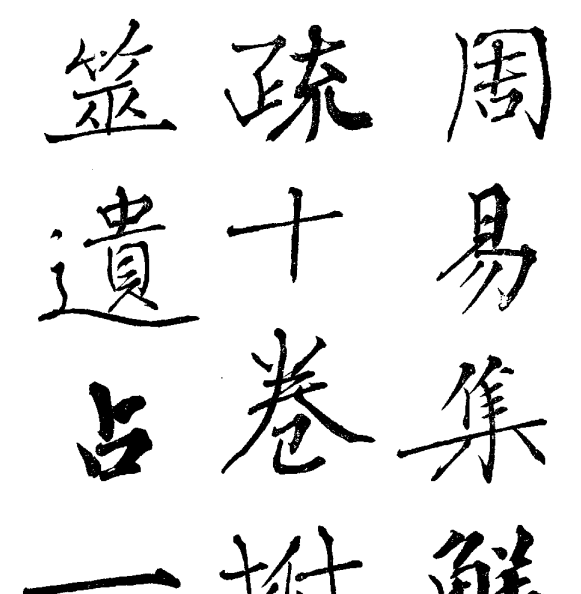 周易集
疏十卷
筮遺占一